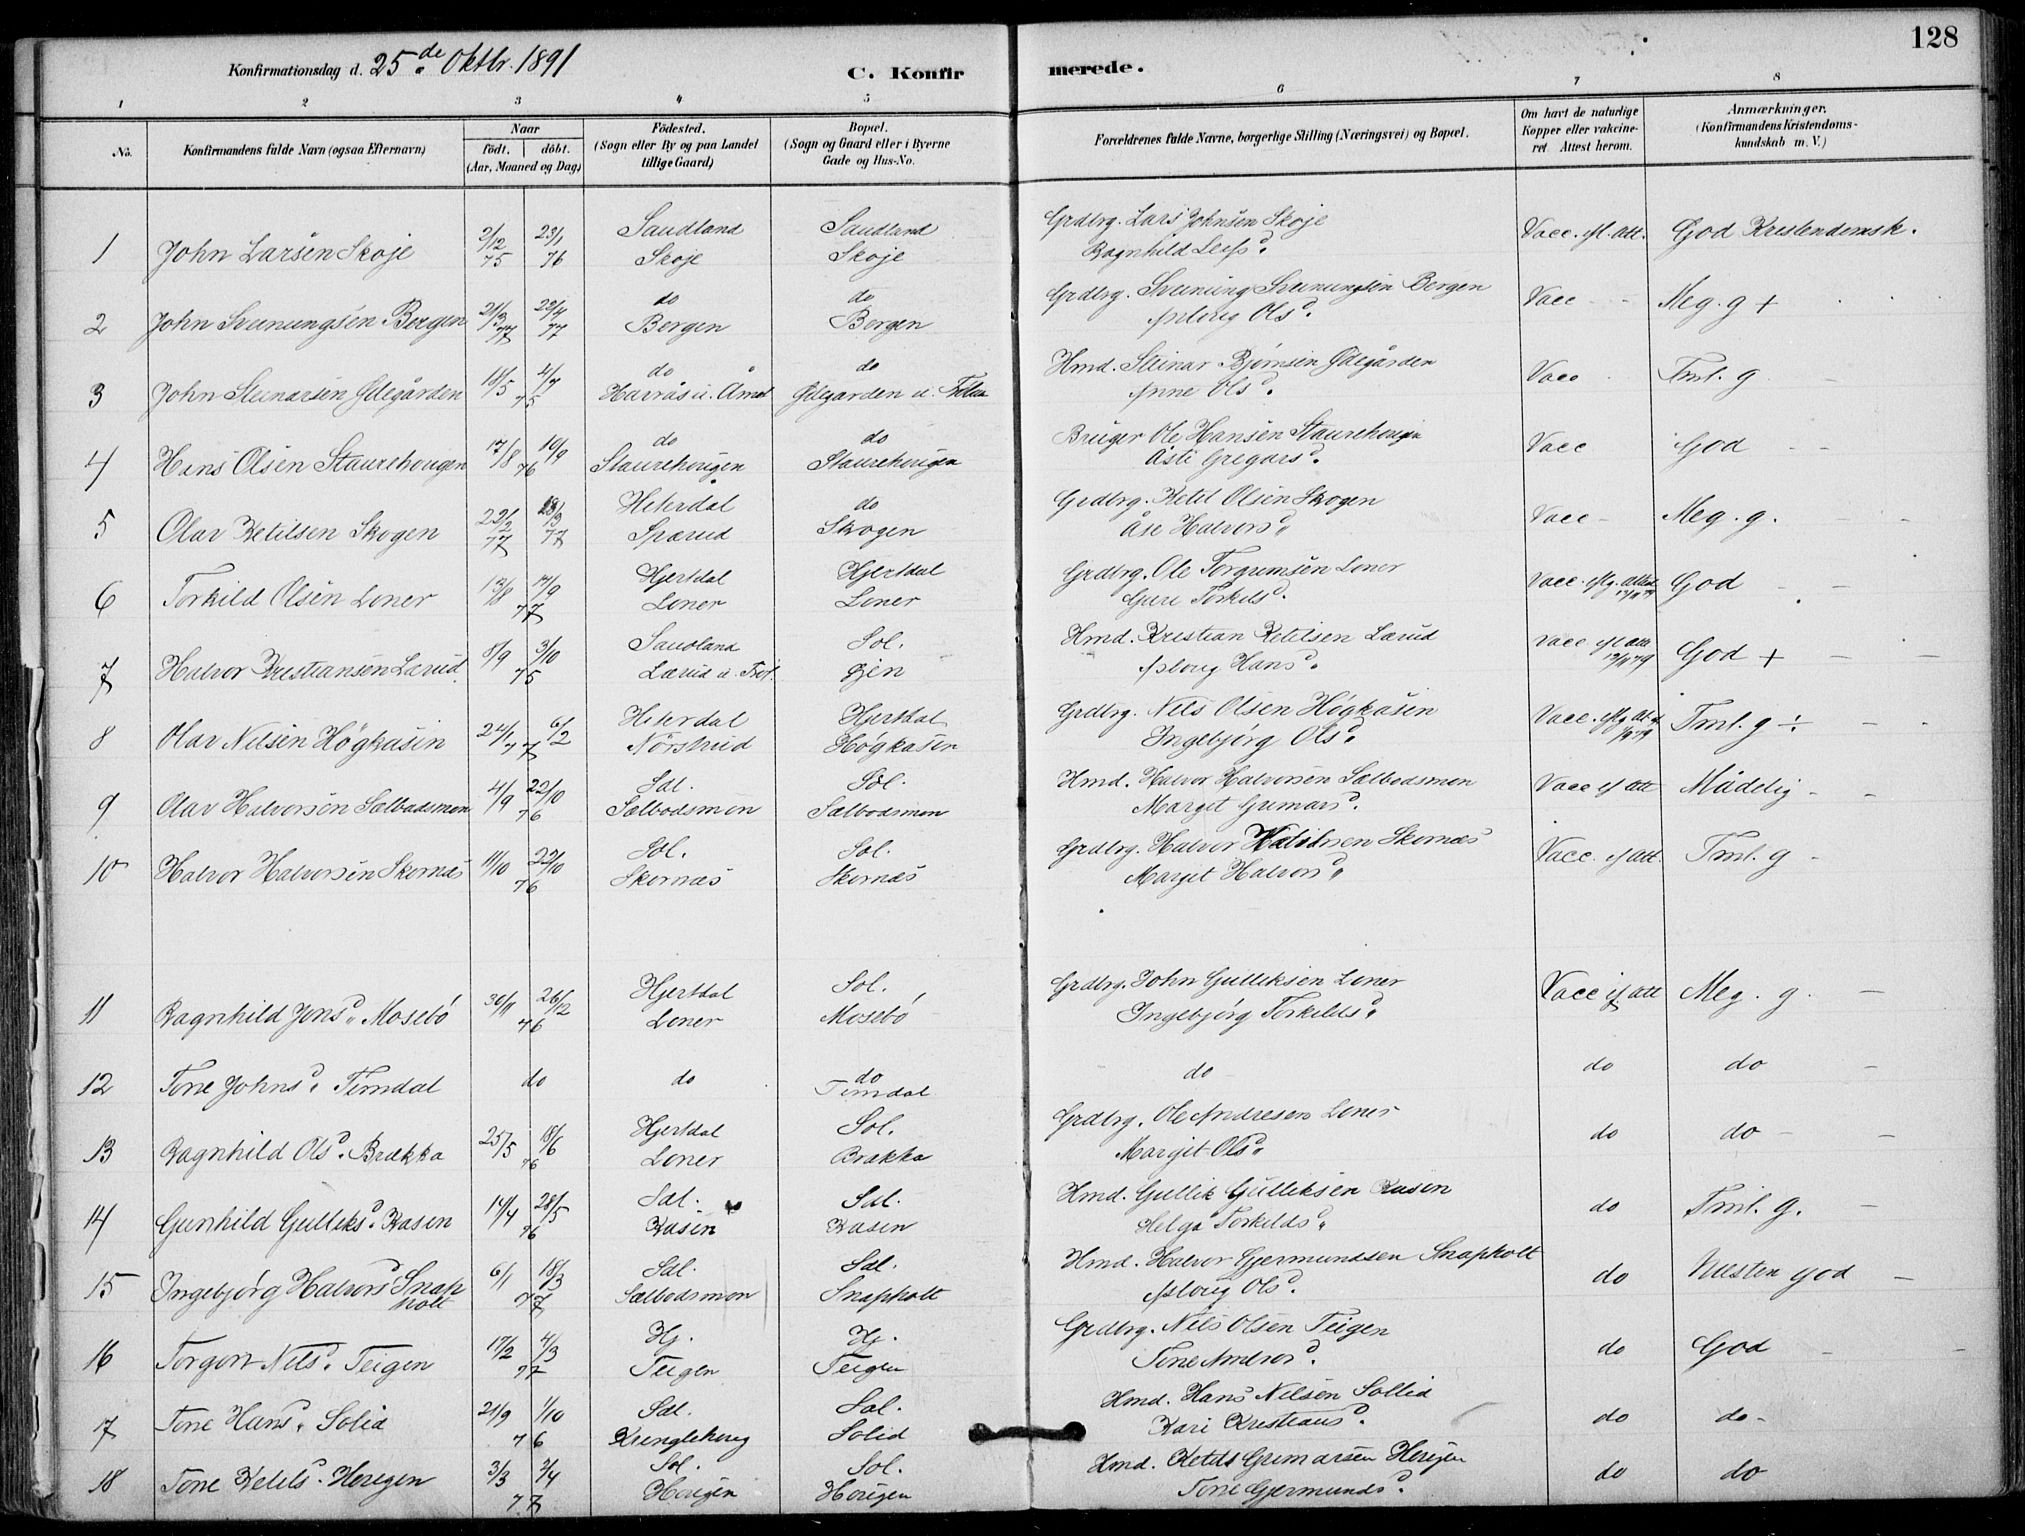 128
Konfirmationsdag d. 25.de Oktbr. 1891
C. Konfir merede.
1 2 3 4 5 6 7 8
No.
Konfirmandens fulde Navn (ogsaa Efternavn)
Naar
födt. döbt.
(Aar, Maaned og Dag)
Födested.
(Sogn eller By og paa Landet
tillige Gaard)
Bopæl.
(Sogn og Gaard eller i Byerne
Gade og Hus-No.
Forældrenes fulde Navne, borgerlige Stilling (Næringsvei) og Bopæl.
Om havt de naturlige
Kopper eller vakcine-
ret. Attest herom.
Anmærkninger.
(Konfirmandens Kristendoms-
kundskab m. V.)
1 John Larsen Skoje 2/12 75 23/1 76 Saudland Skoje Saudland Skoje Grdbrg. Lars Johnsen Skoje
Ragnhild Leifsd. Vacc. ifl. att. God Kristendomsk.
2 John Sveinungsen Bergen 21/3 77 22/4 77 do Bergen do Bergen Grdbrg. Sveinung Sveinungsen Bergen
Asloug Olsd. Vacc - Meg. g +
3 John Steinarsen Ødegården 11/5 4/7 75 do do Ødegarden u. Hmd. Steinar Bjørnsen Ødegården
Anne Olsd. Vacc Tml. g -
4 Hans Olsen Staurehougen 17/8 10/9 76 do Staurehougen do Staurehougen Bruger Ole Hansen Staurehougen
Åste Gregarsd. Vacc God
5 Olav Ketilsen Skogen 22/2 77 77 Hiterdal Sparud do Skogen Grdbrg. Ketil Olsen Skogen
Åse Halvorsd. Vacc - Meg. g.
6 Torkild Olsen Loner 77 Hjertdal Loner Hjertdal Loner Grdbrg. Ole Torgrimsen Loner
Guri Torkilsd. Vacc. God
7 Halvor Kristiansen Larud 8/9 3/10 75 Saudland Larud u. Sol. Øjen Hmd. Kristian Ketilsen Larud
Asloug Hansd. Vacc ifl att God +
8 Olav Nilsen Högkasin 24/1 6/2 77 Hiterdal Nörstrud Hjertdal Högkasen Grdbrg. Nels Olsen Högkåsen
Ingebjørg Olsd. Vacc. Tml. g ÷
9 Olav Halvorsen Sælbodsmon 4/9 22/10 76 Sdl. Sælbodsmon Sdl. Sælbodsmon Hmd. Halvor Halvorsen Sælbodsmon
Margit Grimarsd. Vacc if att Mådelig -
10 Halvor Halvorsen Skornæs 11/10 22/10 76 Sdl. Skornæs Sdl. Skornæs Grdbrg. Halvor Skornæs
Margit Halvorsd. Vacc. if att. Tml. g -
11 Ragnhild Jonsd. Mosebö 30/11 26/12 76 Hjertdal Loner Sol. Mosebö Grdbrg. John Gulliksen Loner
Ingebjörg Torkildsd. Vacc if att Meg. g.
12 Tone Johnsd. Timdal do do do Timdal do do do
13 Ragnhild Olsd. Brækka 25/5 18/6 76 Hjertdal Loner Sol. Brækka Grdbrg. Ole Andresen Loner
Margit Olsd. do do -
14 Gunhild Gulliksd. Kasen 14/4 28/5 76 Sdl. Kasen Sdl. Kasen Hmd. Gullik Gulliksen Kasen
Helga Torkildsd. do Tml. g.
15 Ingebjörg Halvorsd Snap
holt 6/1 18/3 77 Sdl. Sælbodsmon Sdl. Snapholt Hmd. Halvor Gjermundsen Snapholt
Asloug Olsd. do Næsten god
16 Torgon Nilsd. Teigen 17/2 4/3 77 Hj. Teigen Hj. Teigen Grdbrg. Nils Olsen Teigen
Tone do God
17 Tone Hansd. Solid 21/9 1/10 76 Sdl. Kringlehoug Sol. Solid Hmd. Hans Nilsen Sollid
Kari Kristiansd. do do -
18 Tone Ketilsd. Hougen 3/3 2/4 77 Sol. Hougen Sol. Hougen Hmd. Ketil Grimarsen Hougen
Tone Gjermundsd. do do